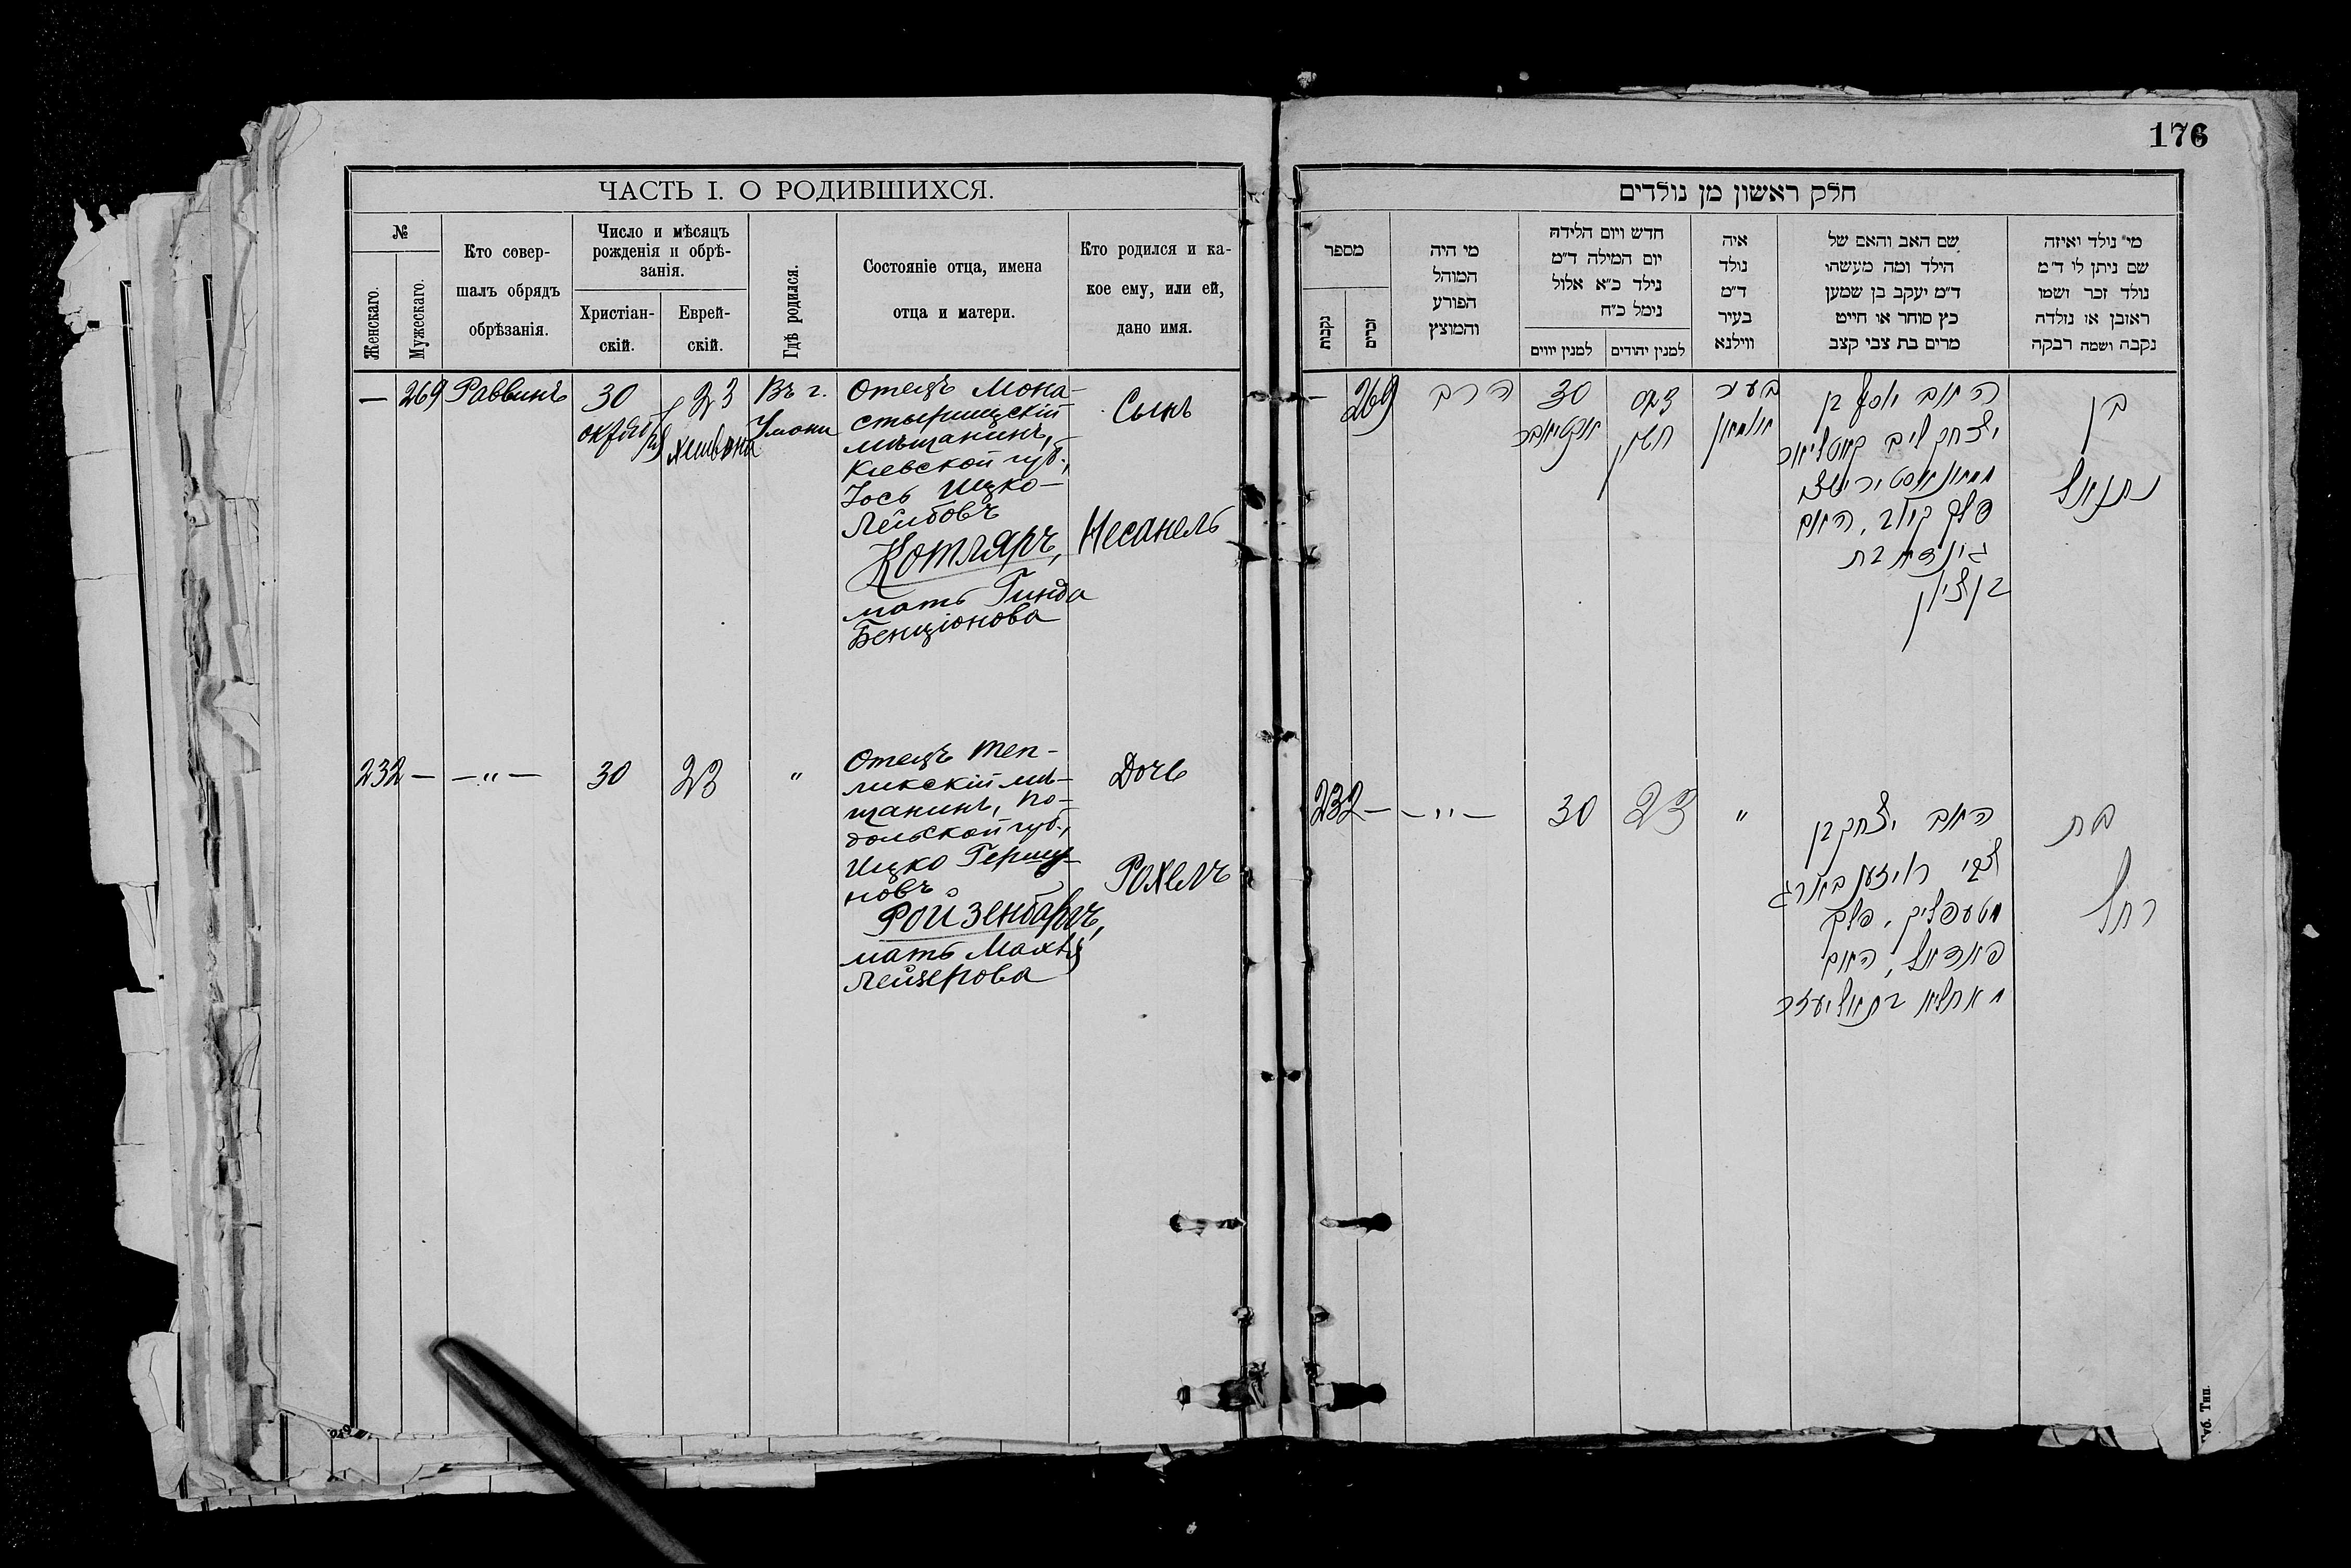 176
ЧАСТЬ I. О РОДИВШИХСЯ.
№
Женскаго.
Мужескаго.
Кто совер-
шалъ обрядъ
обрѣзанія.
Число и мѣсяцъ
рожденія и обрѣ-
занія.
Христіан-
скій.
Еврей-
скій.
Гдѣ родился.
Состояніе отца, имена
отца и матери.
Кто родился и ка-
кое ему, или ей,
дано имя.
— 269 Раввинъ
30
октября
23
хешвана
Въ г.
Умани
Отецъ Мона-
стырищскій
мѣщанинъ,
Кіевской губ.,
Іось Ицко-
Лейбовъ
Котляръ,
мать Гинда
Бенціонова
Сынъ
Несанель
232 — — " — 30 23 "
Отецъ Теп-
ликскій мѣ-
щанинъ, По-
дольской губ.,
Ицко Гершу-
новъ
Ройзенбергъ,
мать Махля
Лейзерова
Дочь
Рохель
חלק ראשון מן נולדים
מספר
נקבות
זכרים
מי היה
המוהל
הפורע
והמוצץ
חדש ויום הלידה
יום המילה ד"מ
נילד כ"א אלול
נימל כ"ח
למנין יווים
למנין יהודים
איה
נולד
ד"מ
בעיר
ווילנא
שם האב והאם של
הילד ומה מעשהו
ד"מ יעקב בן שמען
כץ סוחר או חייט
מרים בת צבי קצב
מי נולד ואיזה
שם ניתן לו ד"מ
נולד זכר ושמו
ראובן או נולדה
נקבה ושמה רבקה
— 269 הרב
30
אקטיאבר
חשון
בעיר
אומאן
האב יוסף בן
יצחק ליב קאטליאר
מאנאסטירישטצ
פלך קיוב, האם
גינדא בת
בן ציון
בן
נתנאל
232 — — " — 30 23 "
האב יצחק בן
צבי רויזענבארג
מטעפליק, פלך
פאדאל, האם
מאחליא בת אליעזר
בת
רחל
Губ. Тип.